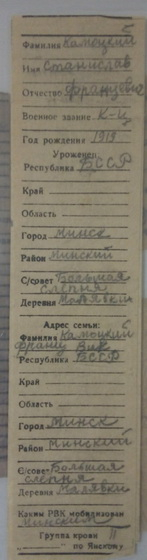 Фамилия Камоцкий
Имя Станислав
Отчество Францевич
Военное звание К-ц
Год рождения 1919
Уроженец
Республика БССР
Край
Область
Город Минск
Район Минский
С/совет Большая
слепня
Деревня Малявки
Адрес семьи:
Фамилия Камоцкий
Франц Вик
Республика БССР
Край
Область
Город Минск
Район Минский
С/совет Большая
слепня
Деревня Малявки
Каким РВК мобилизован
Минским
Группа крови II
по Янскому